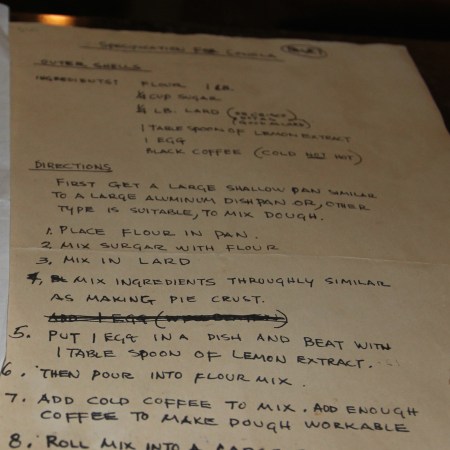 SPECIFICATION FOR
OUTER SHELLS
INGREDIENTS: FLOUR 1 LB.
CUP SUGAR
LB. LARD
1 TABLE SPOON OF LEMON EXTRACT
1 EGG
BLACK COFFEE (COLD NOT HOT)
DIRECTIONS
FIRST GET A LARGE SHALLOW PAN SIMILAR
TO A LARGE ALUMINUM DISHPAN OR, OTHER
TYPE IS SUITABLE, TO MIX DOUGH.
1. PLACE FLOUR IN PAN.
2 MIX SURGAR WITH FLOUR
3, MIX IN LARD
4, MIX INGREDIENTS THROUGHLY SIMILAR
AS MAKING PIE CRUST.
ADD 1 EGG
5. PUT 1 EGG IN A DISH AND BEAT WITH
1 TABLE SPOON OF LEMON EXTRACT.
6. THEN POUR INTO FLOUR MIX.
7. ADD COLD COFFEE TO MIX. ADD ENOUGH
COFFEE TO MAKE DOUGH WORKABLE
8. ROLL MIX INTO A